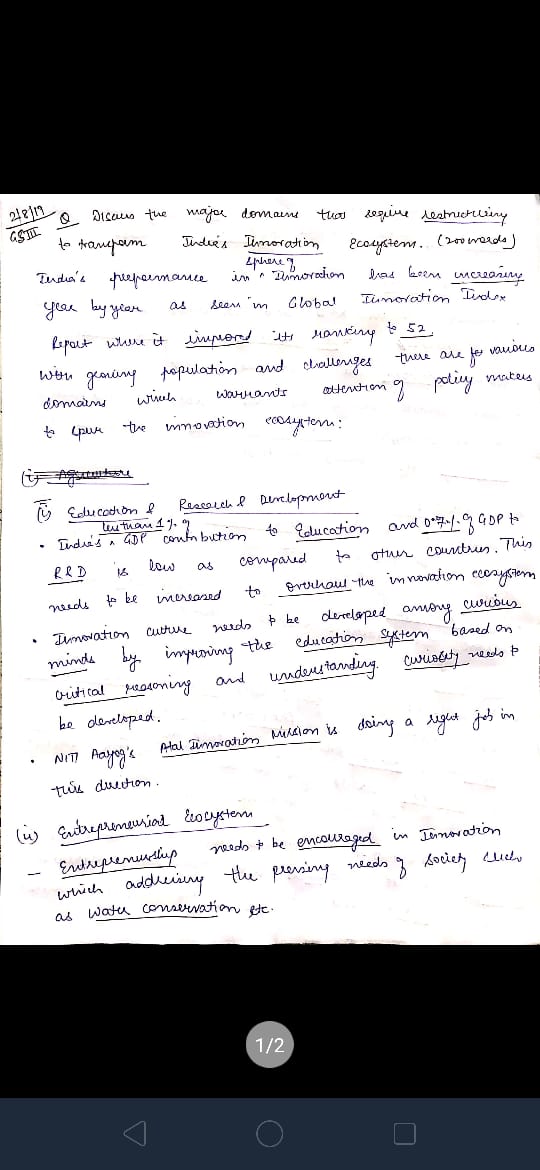 2/8/19
GS III
Q Discuss the major domains that require restructuring
to transform India's Innovation Ecosystem. (200 words)
India's performance in ^ sphere of Innovation has been increasing
year by year as seen in Global Innovation Index
Report where it improved its ranking to 52.
With growing population and challenges there are few various
domains which warrants attention of policy makers
to spur the innovation ecosystem:
(i) Agriculture
(i) Education & Research & Development
• India's ^ less than 1% of GDP contribution to Education and 0.7% of GDP to
R&D is low as compared to other countries. This
needs to be increased to overhaul the innovation ecosystem
• Innovation culture needs to be developed among curious
minds by improving the education system based on
critical reasoning and understanding. Curiosity needs to
be developed.
• NITI Aayog's Atal Innovation Mission is doing a right job in
this direction.
(ii) Entrepreneurial Ecosystem
– Entrepreneurship needs to be encouraged in Innovation
which addressing the pressing needs of society such
as water conservation etc.
1/2